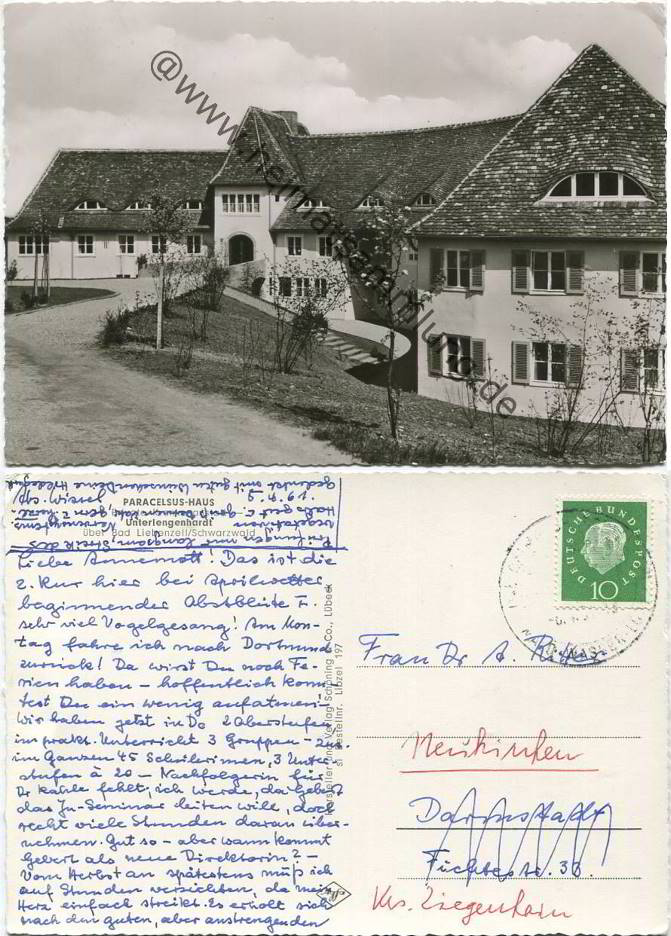 @www.heimatsammlung.de
PARACELSUS-HAUS
Unterlengenhardt
über Bad Liebenzell/Schwarzwald
Liebe Annemott! Das ist die
2. Kur hier bei Aprilwetter
beginnender Obstblüte u.
sehr viel Vogelgesang! Am Mon-
tag fahre ich nach Dortmund
zurück! Da wirst Du noch Fe-
rien haben - hoffentlich konn-
test Du ein wenig aufatmen!
Wir haben jetzt in Do 2 Oberstufen,
im prakt. Unterricht 3 Gruppen - zus.
im Ganzen 45 Schülerinnen, 3 Unter-
stufen à 20 - Nachfolgerin für
Dr Kahle fehlt, ich werde, da Gebert
das In-Seminar leiten will, doch
recht viele Stunden daran über-
nehmen. Gut so - aber wann kommt
Gebert als neue Direktorin? -
Vom Herbst an spätestens muß ich
auf Stunden verzichten, da mein
Herz einfach streikt. Es erholt sich
nach den guten, aber anstrengenden
Verlag Schöning & Co., Lübeck
Bestellnr. Libzel 197
DEUTSCHE BUNDESPOST
10
Frau Dr. A.
Neukirchen
Darmstadt
Fichtestr. 36.
Krs. Ziegenhain